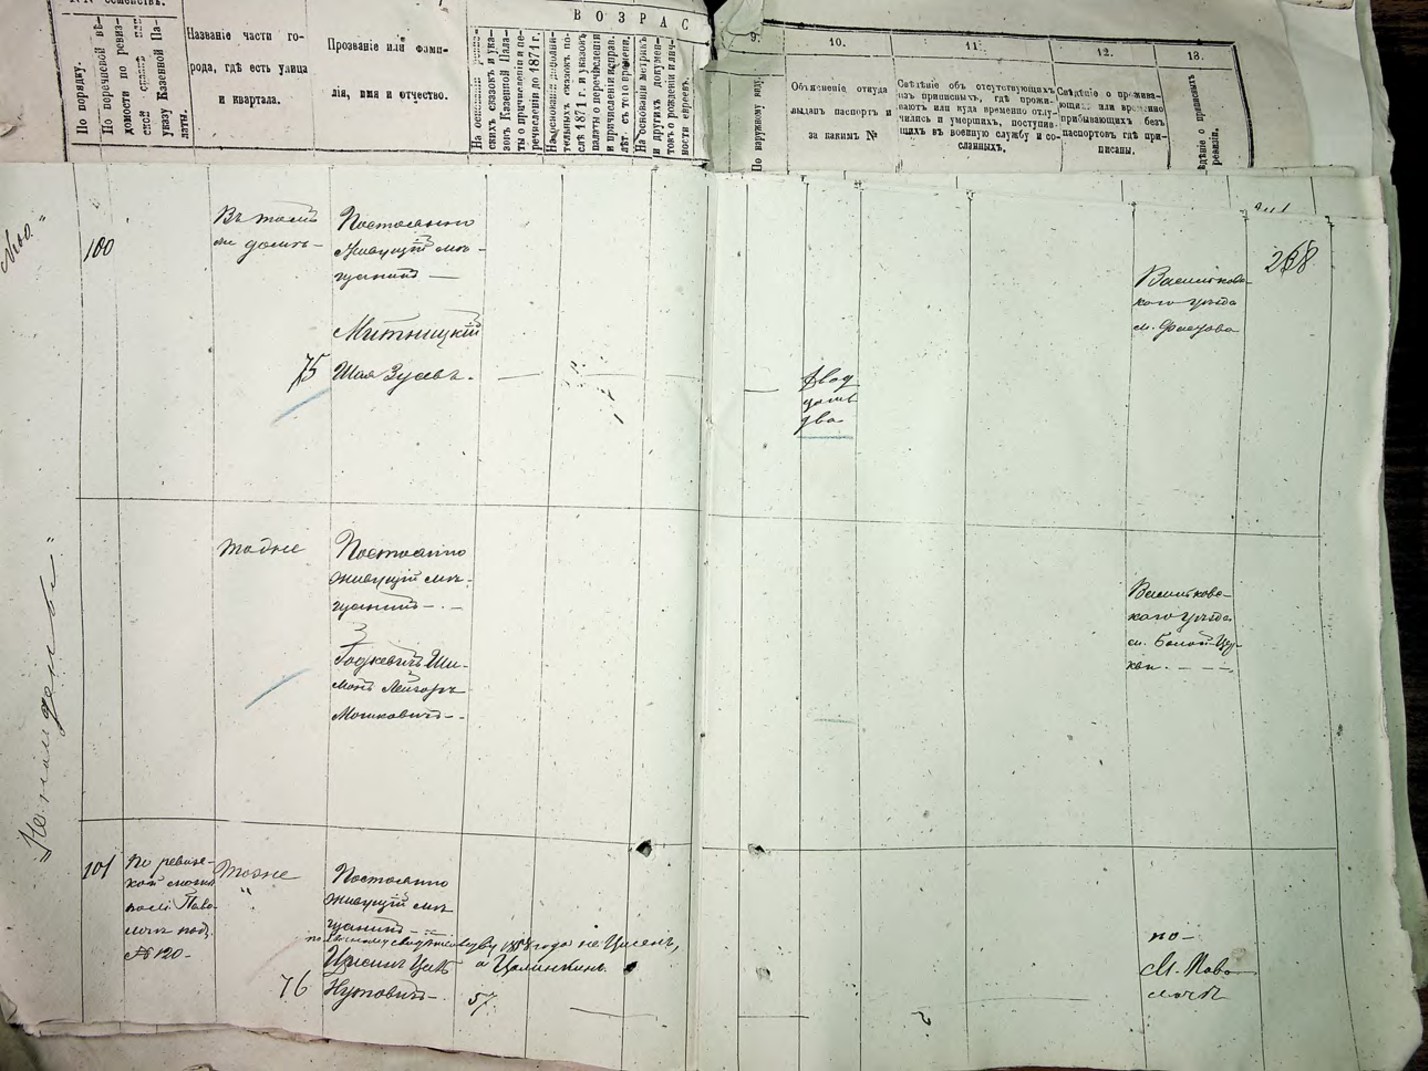 №№ семействъ.
По порядку.
По перечневой вѣ-
домости по ревиз-
ской сказкѣ или
указу Казенной Па-
латы.
Названіе части го-
рода, гдѣ есть улица
и квартала.
Прозваніе или фами-
лія, имя и отчество.
ВОЗРАС
На основаніи ревиз-
скихъ сказокъ и ука-
зовъ Казенной Пала-
ты о причисленіи и пе-
речисленіи до 1871 г.
На основаніи дополни-
тельныхъ сказокъ по-
слѣ 1871 г. и указовъ
палаты о перечисленіи
и причисленіи исправ.
лѣт. съ того времени.
На основаніи метрикъ
и другихъ докумен-
товъ о рожденіи и лич-
ности евреевъ.
9.
По наружному виду.
10.
Объясненіе откуда
выданъ паспортъ и
за какимъ №
11.
Свѣдѣніе объ отсутствующихъ
изъ приписныхъ, гдѣ прожи-
ваютъ или куда временно отлу-
чились и умершихъ, поступив-
щихъ въ военную службу и со-
сланныхъ.
12.
Свѣдѣніе о прожива-
ющихъ или временно
прибывающихъ безъ
паспортовъ гдѣ при-
писаны.
13.
ревизіи.
100
Въ томъ
же домѣ-
Постоянно
живущій мѣ-
щанинъ
Митницкій
75 Шая Зусевъ.
Двад
цать
два
Васильков-
каго уѣзда
м. Фастова
268
тоже
Постоянно
живущій мѣ-
щанинъ
Годкевичъ Ши-
монъ Лейзоръ
Мошковичъ
Васильков-
каго уѣзда
м. Бѣлой-Цер-
кви.
101
По ревизс-
кой сказкѣ
Паво-
лочи подъ
№ 120
Тоже
"
Постоянно
живущій мѣ-
щанинъ
1858 года не Цисенъ,
а Цалинкинъ.
76
Нутовичъ
57.
по-
М. Паво-
лочѣ